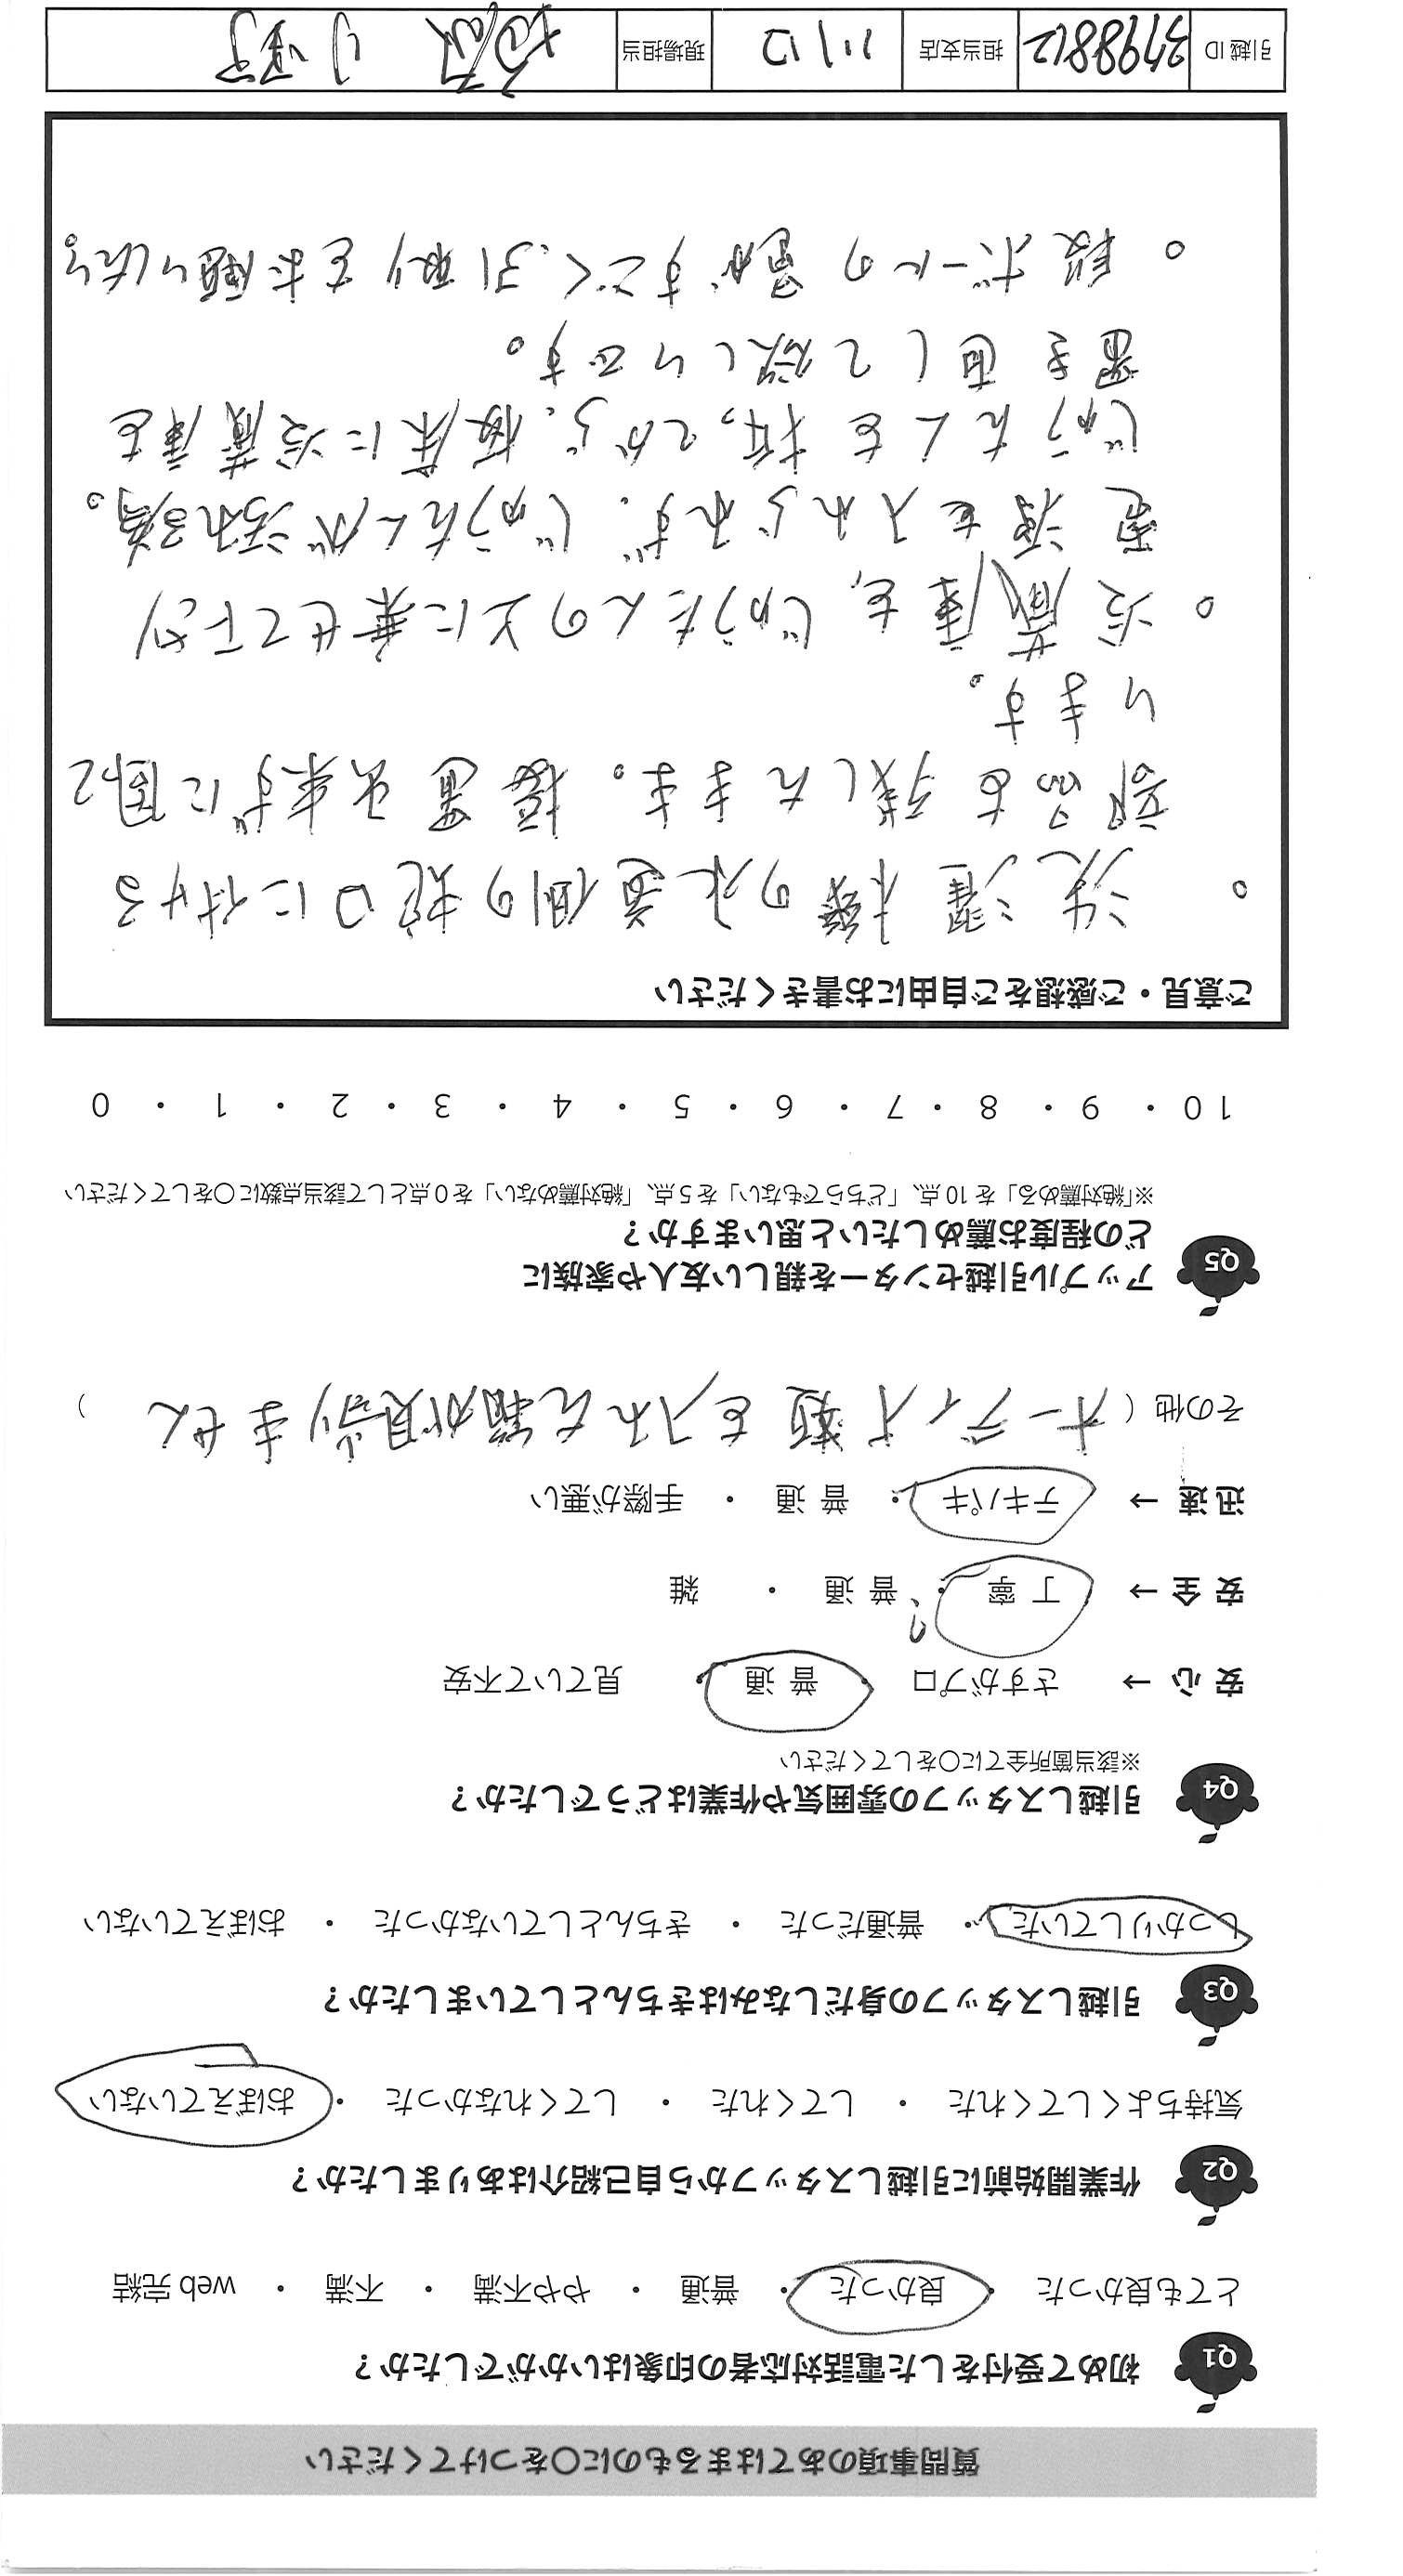 質問事項のあてはまるものに○をつけてください
Q1 初めて受付をした電話対応者の印象はいかがでしたか？
とても良かった ・ 良かった ・ 普通 ・ やや不満 ・ 不満 ・ web完結
Q2 作業開始前に引越しスタッフから自己紹介はありましたか？
気持ちよくしてくれた ・ してくれた ・ してくれなかった ・ おぼえていない
Q3 引越しスタッフの身だしなみはきちんとしていましたか？
しっかりしていた ・ 普通だった ・ きちんとしていなかった ・ おぼえていない
Q4 引越しスタッフの雰囲気や作業はどうでしたか？
※該当箇所全てに○をしてください
安心 → さすがプロ ・ 普通 ・ 見ていて不安
安全 → 丁寧 ・ 普通 ・ 雑
?
迅速 → テキパキ ・ 普通 ・ 手際が悪い
その他（オーディオ類を入れた箱が見当りません）
Q5 アップル引越センターを親しい友人や家族に
どの程度お薦めしたいと思いますか？
※「絶対薦める」を10点、「どちらでもない」を5点、「絶対薦めない」を0点として該当点数に○をしてください
10 ・ 9 ・ 8 ・ 7 ・ 6 ・ 5 ・ 4 ・ 3 ・ 2 ・ 1 ・ 0
ご意見・ご感想をご自由にお書きください
。洗濯機の水道側の蛇口に付ける
部品も残したまま。接置出来ずに困って
います。
。冷蔵庫を、じゅうたんの上に乗せて下さり
電源を入れられず、じゅうたんが汚れる為。
じゅうたんを拭いてから、板床に冷蔵庫を
置き直して欲しいです。
。段ボールの量がすごく、引取りをお願いしたい。
引越ID 3798812 担当支店 川口 現場担当 小野